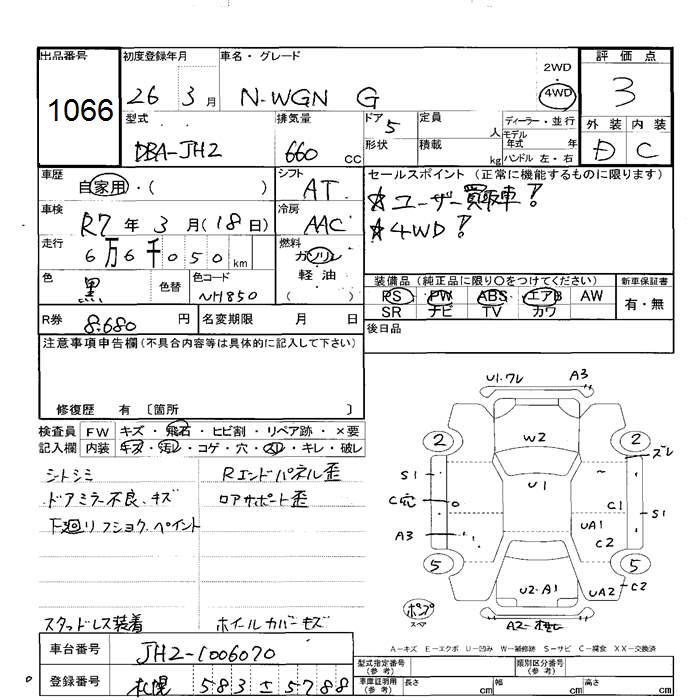 出品番号 初度登録年月 車名・グレード 評価点
1066 26 3月 N-WGN G 2WD 4WD 3
型式 排気量 ドア 5 定員 人 ディーラー・並行 外装 内装
DBA-JH2 660 cc 形状 積載 kg モデル年式 年 ハンドル 左・右 D C
車歴 自家用・( ) シフト AT セールスポイント (正常に機能するものに限ります)
車検 R7年3月(18日) 冷房 AAC ☆ユーザー買取車!
走行 6万6千050km 燃料 ガソリン 軽油 ( ) ☆4WD!
色 黒 色替 色コード NH850 装備品(純正品に限り○をつけてください) 新車保証書
PS PW ABS エアB AW 有・無
R券 8.680円 名変期限 月 日 SR ナビ TV カワ
注意事項申告欄(不具合内容等は具体的に記入して下さい) 後日品
修復歴 有 〔箇所 〕
検査員 FW キズ・飛石・ヒビ割・リペア跡・×要
記入欄 内装 キズ・汚レ・コゲ・穴・スレ・キレ・破レ
シトシミ Rエンドパネル歪
ドアミラー不良、キズ ロアサポート歪
下廻リフショク、ペイント
スタッドレス装着 ホイールカバーキズ
U1.ワレ A3
2 W2 2 ズレ
S1 U1
C穴 C1 S1
A3 UA1 C2
5 U2・A1 5
UA2 C2
ポンプ スペア
A2
A-キズ E-エクボ U-凹み W-補修跡 S-サビ C-腐食 XX-交換済
車台番号 JH2-1006070
型式指定番号(参考) 類別区分番号(参考)
登録番号 札幌 583 ± 5788
車庫証明用(参考) 長さ cm 幅 cm 高さ cm